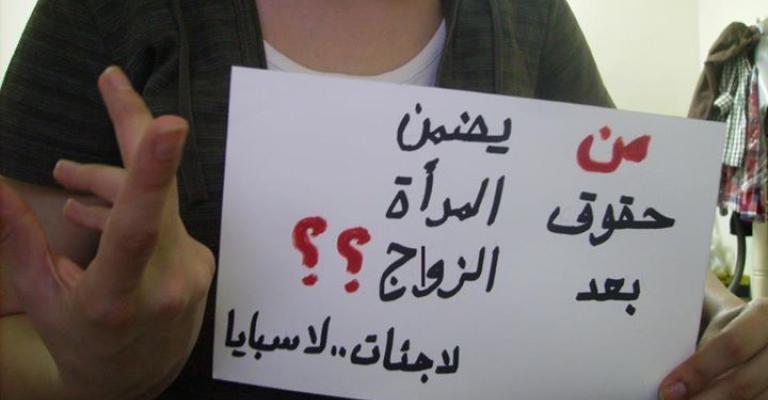 من يضمن
حقوق المرأة
بعد الزواج ؟؟
لاجئات..لاسبايا